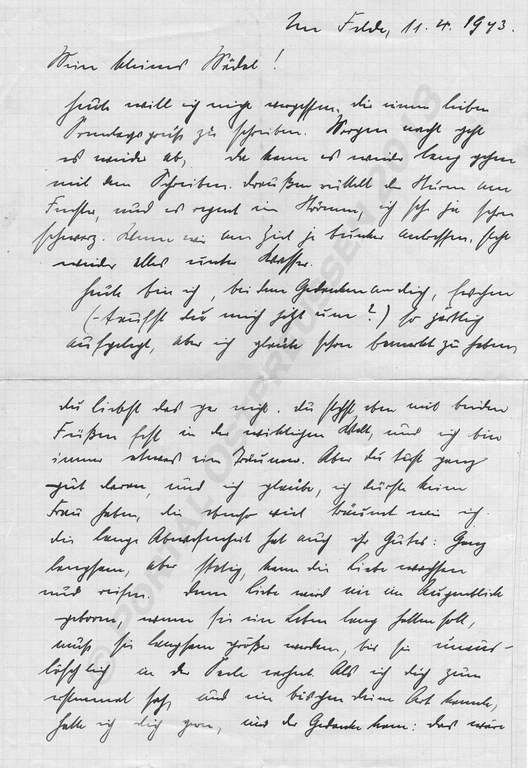 Im Felde, 11. 4. 1943.
Mein kleines Mädel!
Heute will ich nicht vergessen, dir einen lieben
Sonntagsgruß zu schreiben. Morgen nacht geht
es wieder ab, da kann es wieder lang gehen
mit dem Schreiben. Draußen rüttelt der Sturm am
Fenster, und es regnet in Strömen, ich seh ja schon
schwarz. Wenn wir am Ziel je Bunker antreffen, steht
wieder alles unter Wasser.
Heute bin ich, bei dem Gedanken an dich,
(- taufst du mich jetzt um?) so zärtlich
aufgelegt, aber ich glaube schon bemerkt zu haben,
du liebst das gar nicht. Du stehst eben mit beiden
Füßen fest in der wirklichen Welt, und ich bin
immer etwas ein Träumer. Aber du tust ganz
gut daran, und ich glaube, ich dürfte keine
Frau haben, die ebenso viel träumt wie ich.
Die lange Abwesenheit hat auch ihr Gutes: Ganz
langsam, aber stetig, kann die Liebe wachsen
und reifen. Denn Liebe wird nie im Augenblick
geboren, wenn sie ein Leben lang halten soll,
muß sie langsam größer werden, bis sie unaus-
löschlich in der Seele wohnt. Als ich dich zum
erstenmal sah, und ein bischen deine Art kannte,
hatte ich dich gern, und der Gedanke kam: das wäre
© PORTAL-OSTPREUSSEN 2013